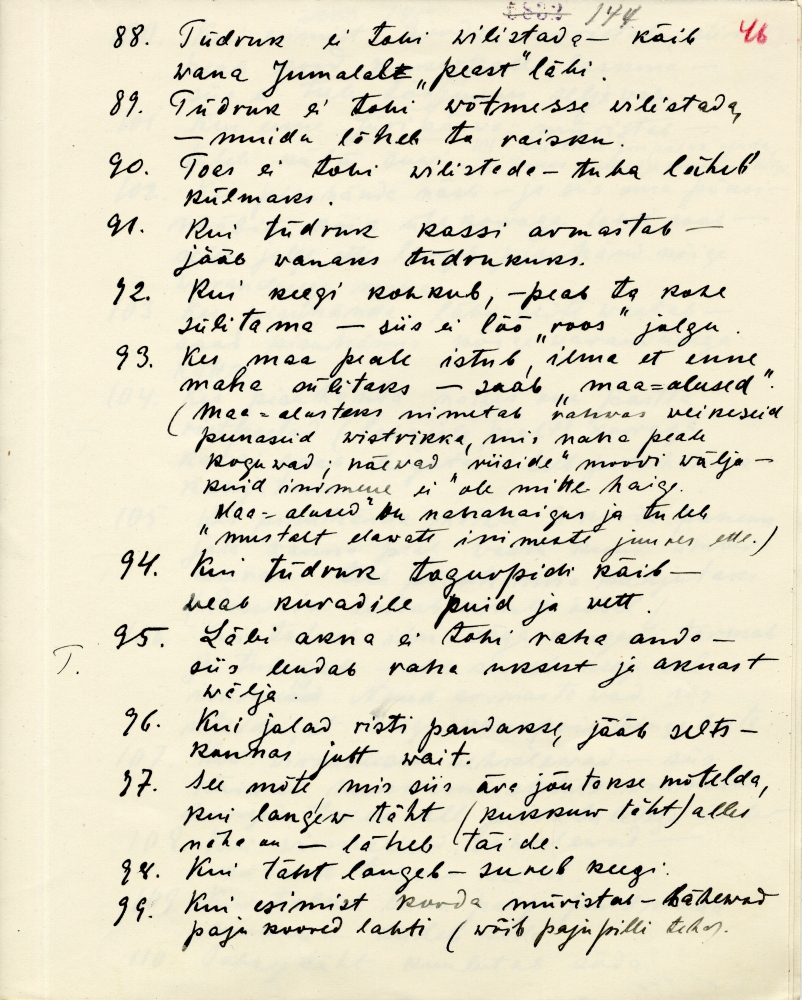 144
46
88. Tüdruk ei tohi wilistada — käib
wana Jumalalt „peast" läbi.
89. Tüdruk ei tohi wõtmesse wilistada,
— muidu läheb ta raisku.
90. Toas ei tohi wilistada — tuba läheb
külmaks.
91. Kui tüdruk kassi armastab —
jääb wanaks tüdrukuks.
92. Kui keegi kohkub, — peab ta kohe
sülitama — siis ei löö „roos" jalgu.
93. Kes maa peale istub, ilma et enne
maha sülitaks — saab „maa=alused".
(Maa=alusteks nimetab rahwas weikeseid
punaseid wistrikka, mis naha peale
koguwad; näewad „riiside" moodi wälja —
kuid inimene ei ole mitte haige.
„Maa=alused" on nahahaigus ja tuleb
mustalt elawate inimeste juures ette.)
94. Kui tüdruk tagurpidi käib —
weab kuradile puid ja wett.
T. 95. Läbi akna ei tohi raha anda —
siis lendab raha uksest ja aknast
wälja.
96. Kui jalad risti pandakse, jääb selts-
konnas jutt wait.
97. See mõte, mis siis ära jõutakse mõtelda,
kui langew täht (kukkuw täht) alles
näha on — läheb täide.
98. Kui täht langeb — sureb keegi.
99. Kui esimist korda müristab — lähewad
paju koored lahti (wõib pajupilli teha).